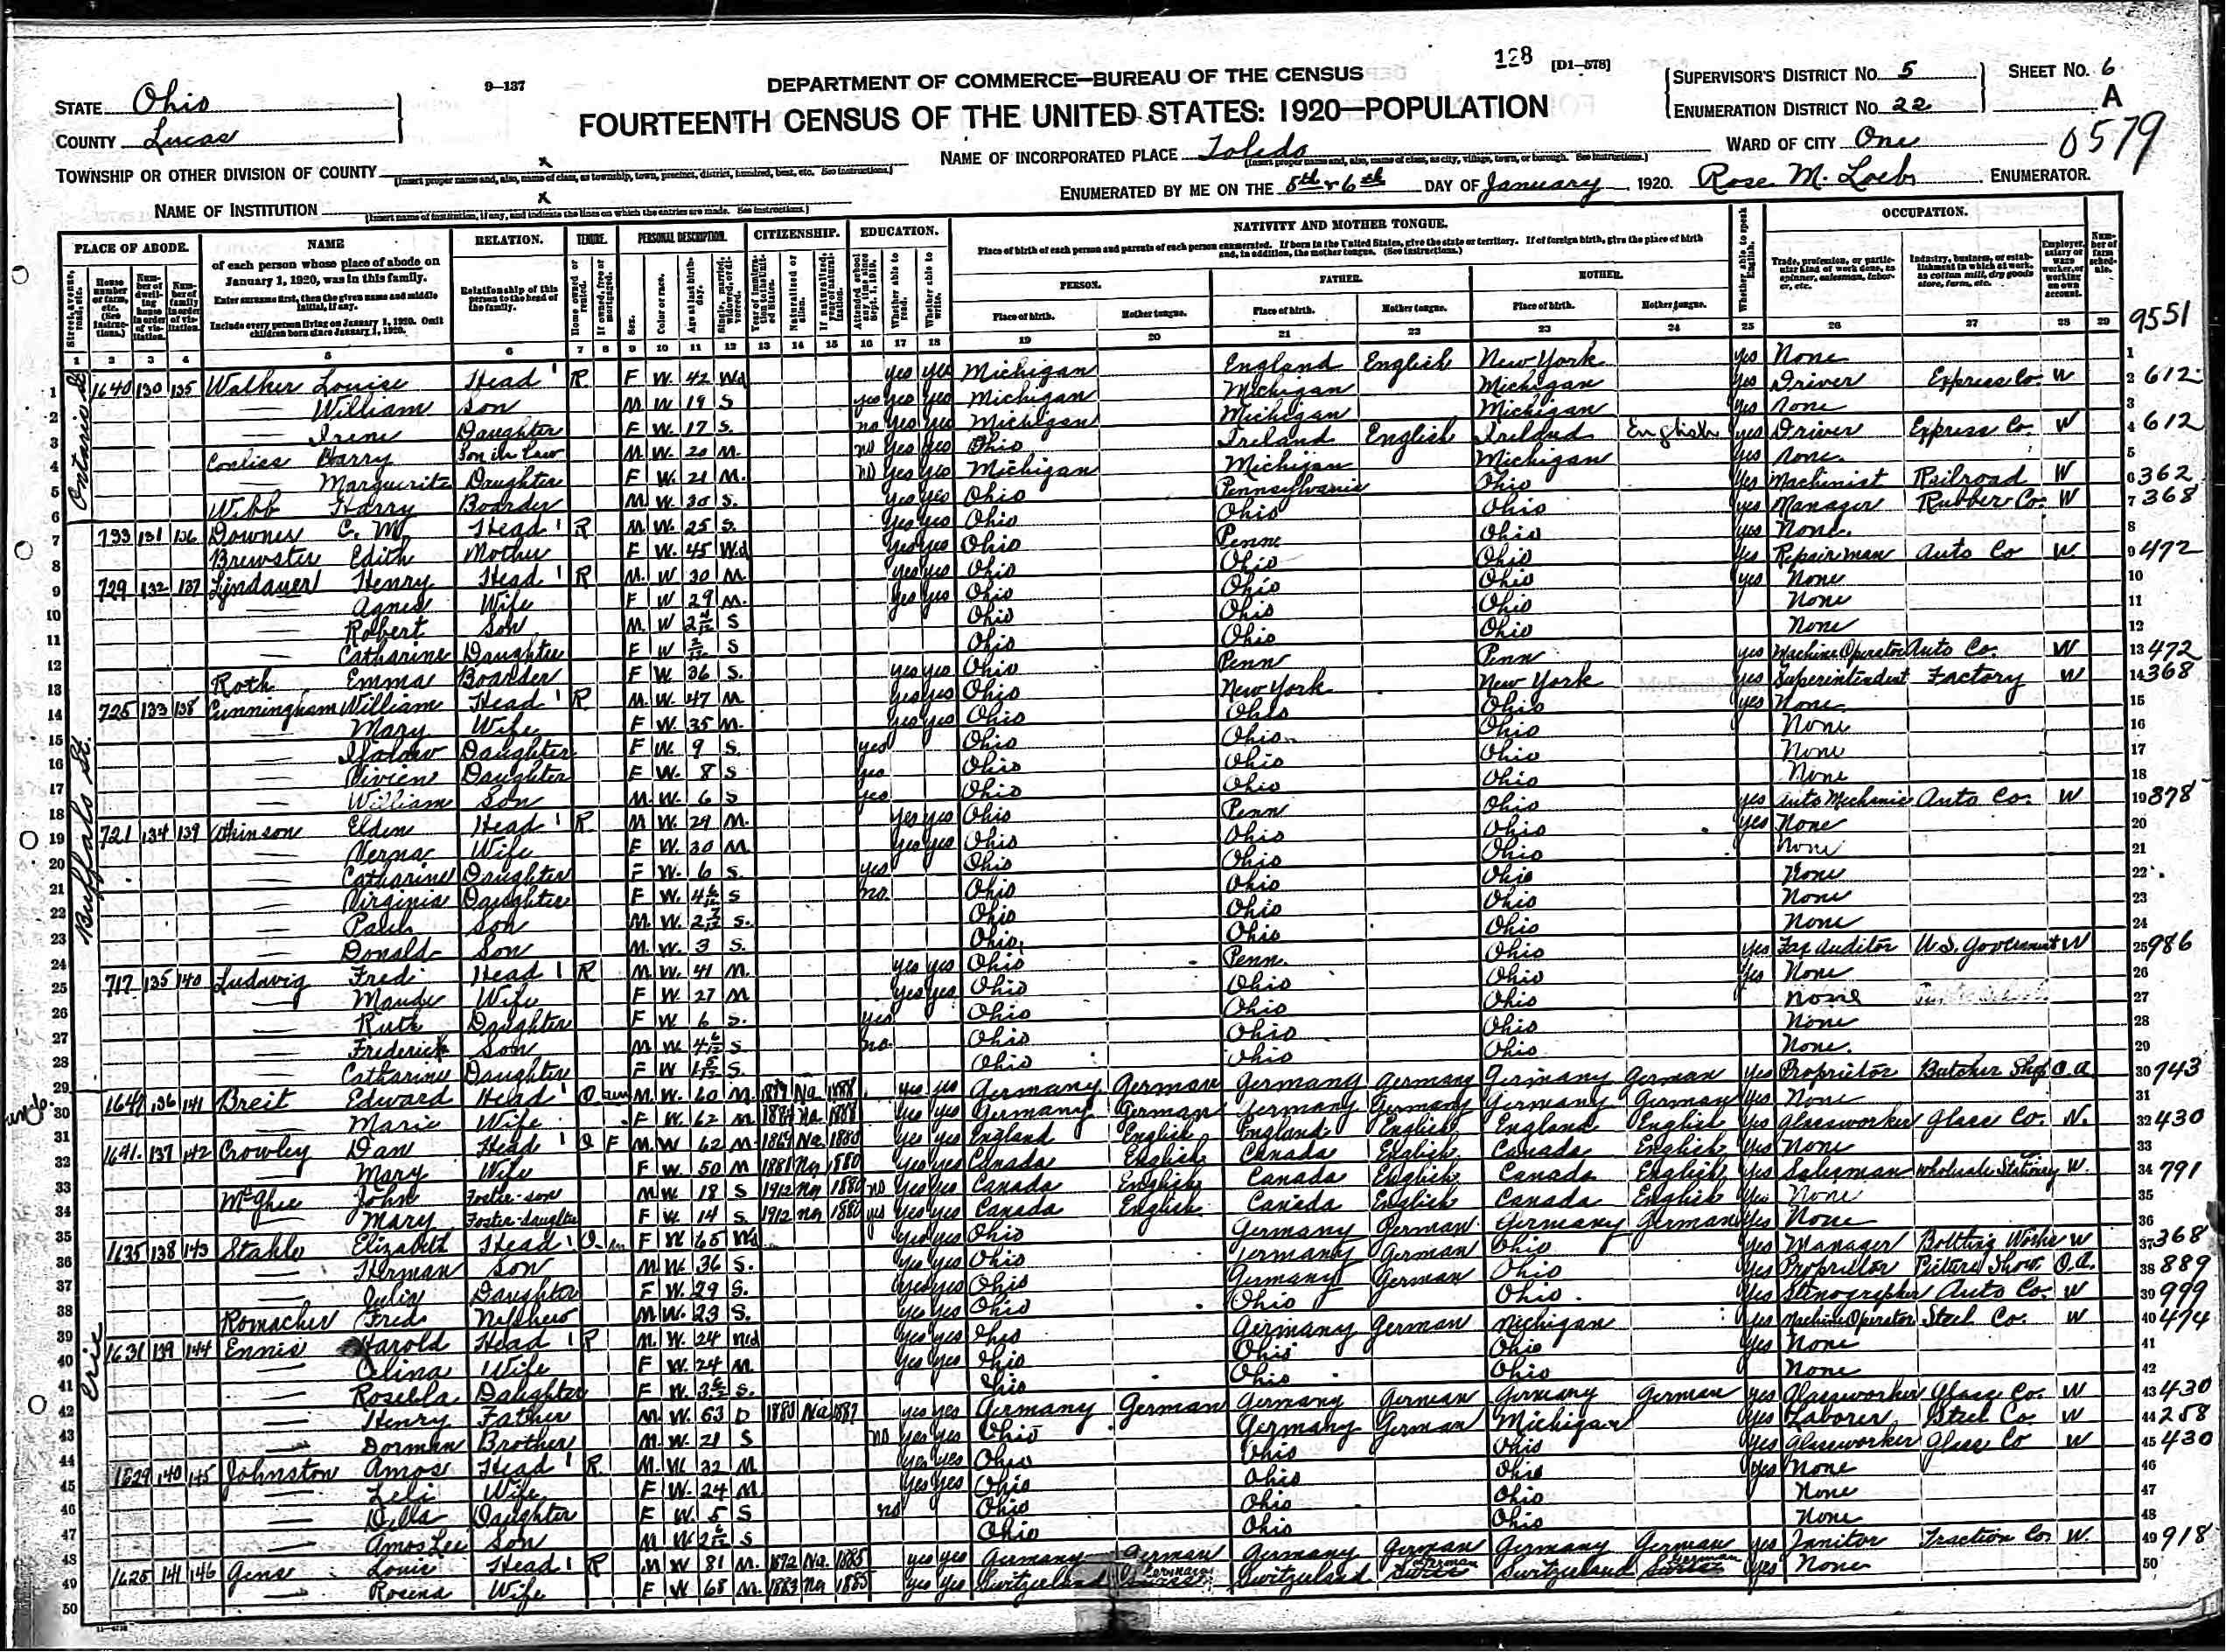 128 [D1-578]
9-137
DEPARTMENT OF COMMERCE—BUREAU OF THE CENSUS
FOURTEENTH CENSUS OF THE UNITED STATES: 1920—POPULATION
STATE Ohio
COUNTY Lucas
TOWNSHIP OR OTHER DIVISION OF COUNTY x
[Insert proper name and, also, name of class, as township, town, precinct, district, hundred, beat, etc. See instructions.]
NAME OF INSTITUTION x
[Insert name of institution, if any, and indicate the lines on which the entries are made. See instructions.]
NAME OF INCORPORATED PLACE Toledo
[Insert proper name and, also, name of class, as city, village, town, or borough. See instructions.]
ENUMERATED BY ME ON THE 5th & 6th DAY OF January, 1920. Rose M. Loeb ENUMERATOR.
SUPERVISOR'S DISTRICT NO. 5
ENUMERATION DISTRICT NO. 22
SHEET NO. 6
A
WARD OF CITY One
0579
9551
PLACE OF ABODE.
NAME
of each person whose place of abode on January 1, 1920, was in this family.
Enter surname first, then the given name and middle initial, if any.
Include every person living on January 1, 1920. Omit children born since January 1, 1920.
RELATION.
Relationship of this person to the head of the family.
TENURE.
PERSONAL DESCRIPTION.
CITIZENSHIP.
EDUCATION.
NATIVITY AND MOTHER TONGUE.
Place of birth of each person and parents of each person enumerated. If born in the United States, give the state or territory. If of foreign birth, give the place of birth and, in addition, the mother tongue. (See instructions.)
PERSON.
FATHER.
MOTHER.
Place of birth. Mother tongue. Place of birth. Mother tongue. Place of birth. Mother tongue.
Whether able to speak English.
OCCUPATION.
1 2 3 4 5 6 7 8 9 10 11 12 13 14 15 16 17 18 19 20 21 22 23 24 25 26 27 28 29
Ontario St
Buffalo St.
Erie
1640 130 135 Walker Louise Head R F W 42 Wd yes yes Michigan England English New York yes None
— William Son M W 19 S yes yes yes Michigan Michigan Michigan yes Driver Express Co. W 612
— Irene Daughter F W 17 S no yes yes Michigan Michigan Michigan yes None
Harry Son in law M W 20 M no yes yes Ohio Ireland English Ireland English yes Driver Express Co. W 612
— Marguerite Daughter F W 21 M no yes yes Michigan Michigan Michigan yes None
Webb Harry Boarder M W 30 S yes yes Ohio Pennsylvania Ohio yes Machinist Railroad W 362
733 131 136 Downer C. M. Head R M W 25 S yes yes Ohio Ohio Ohio yes Manager Rubber Co. W 368
Brewster Edith Mother F W 45 Wd yes yes Ohio Penn Ohio yes None
729 132 137 Lindauer Henry Head R M W 30 M yes yes Ohio Ohio Ohio yes Repairman Auto Co W 472
— Agnes Wife F W 29 M yes yes Ohio Ohio Ohio yes None
— Robert Son M W S Ohio Ohio Ohio None
— Catharine Daughter F W S Ohio Ohio Ohio None
Roth Emma Boarder F W 36 S yes yes Ohio Penn Penn yes Machine Operator Auto Co. W 472
725 133 138 Cunningham William Head R M W 47 M yes yes Ohio New York New York yes Superintendent Factory W 368
— Mary Wife F W 35 M yes yes Ohio Ohio Ohio yes None
— Daughter F W 9 S yes Ohio Ohio Ohio None
— Vivien Daughter F W 8 S yes Ohio Ohio Ohio None
— William Son M W 6 S yes Ohio Ohio Ohio None
721 134 139 Atkinson Elden Head R M W 29 M yes yes Ohio Penn Ohio yes Auto Mechanic Auto Co. W 878
— Verna Wife F W 30 M yes yes Ohio Ohio Ohio yes None
— Catharine Daughter F W 6 S yes Ohio Ohio Ohio None
— Virginia Daughter F W S no Ohio Ohio Ohio None
— Paul Son M W S Ohio Ohio Ohio None
— Donald Son M W 3 S Ohio Ohio Ohio None
717 135 140 Ludwig Fred Head R M W 41 M yes yes Ohio Penn. Ohio yes Tax Auditor U.S. Government W 986
— Maude Wife F W 27 M yes yes Ohio Ohio Ohio yes None
— Ruth Daughter F W 6 S yes Ohio Ohio Ohio None
— Frederick Son M W S no Ohio Ohio Ohio None
— Catharine Daughter F W S Ohio Ohio Ohio None
136 141 Breit Edward Head O M W 60 M Na 1888 yes yes Germany German Germany Germany Germany German yes Proprietor Butcher Shop O.A. 743
— Marie Wife F W 62 M 1884 Na 1888 yes yes Germany German Germany Germany Germany German yes None
1641 137 142 Crowley Dan Head O F M W 62 M 1869 Na 1880 yes yes England English England English England English yes Glassworker Glass Co. W. 430
— Mary Wife F W 50 M 1881 Na 1880 yes yes Canada English Canada English Canada English yes None
McGhee John Foster-son M W 18 S 1912 Na 1880 no yes yes Canada English Canada English Canada English yes Salesman Wholesale Stationery W. 791
— Mary Foster-daughter F W 14 S 1912 Na 1880 yes yes yes Canada English Canada English Canada English yes None
1635 138 143 Stahl Elizabeth Head O F W 65 Wd yes yes Ohio Germany German Germany German yes None
— Herman Son M W 36 S yes yes Ohio Germany German Ohio yes Manager Bottling Works W 368
— Julia Daughter F W 29 S yes yes Ohio Germany German Ohio yes Proprietor Picture Show O.A. 889
Romacher Fred Nephew M W 23 S yes yes Ohio Ohio Ohio yes Stenographer Auto Co. W 999
1631 139 144 Ennis Harold Head R M W 24 Md yes yes Ohio Germany German Michigan yes Machine Operator Steel Co. W 474
— Olina Wife F W 24 M yes yes Ohio Ohio Ohio yes None
— Rosella Daughter F W S Ohio Ohio Ohio None
— Henry Father M W 53 D 1880 Na 1887 yes yes Germany German Germany German Germany German yes Glassworker Glass Co. W 430
— Dorman Brother M W 21 S no yes yes Ohio Germany German Michigan yes Laborer Steel Co. W 258
1629 140 145 Johnston Amos Head R M W 32 M yes yes Ohio Ohio Ohio yes Glassworker Glass Co W 430
— Wife F W 24 M yes yes Ohio Ohio Ohio yes None
— Della Daughter F W 5 S no Ohio Ohio Ohio None
— Amos Lee Son M W S Ohio Ohio Ohio None
1625 141 146 Gens Louis Head R M W 81 M 1872 Na 1885 yes yes Germany German Germany German Germany German yes Janitor Traction Co. W. 918
— Rosena Wife F W 68 M 1883 Na 1885 yes yes Switzerland German Switzerland German Switzerland German yes None